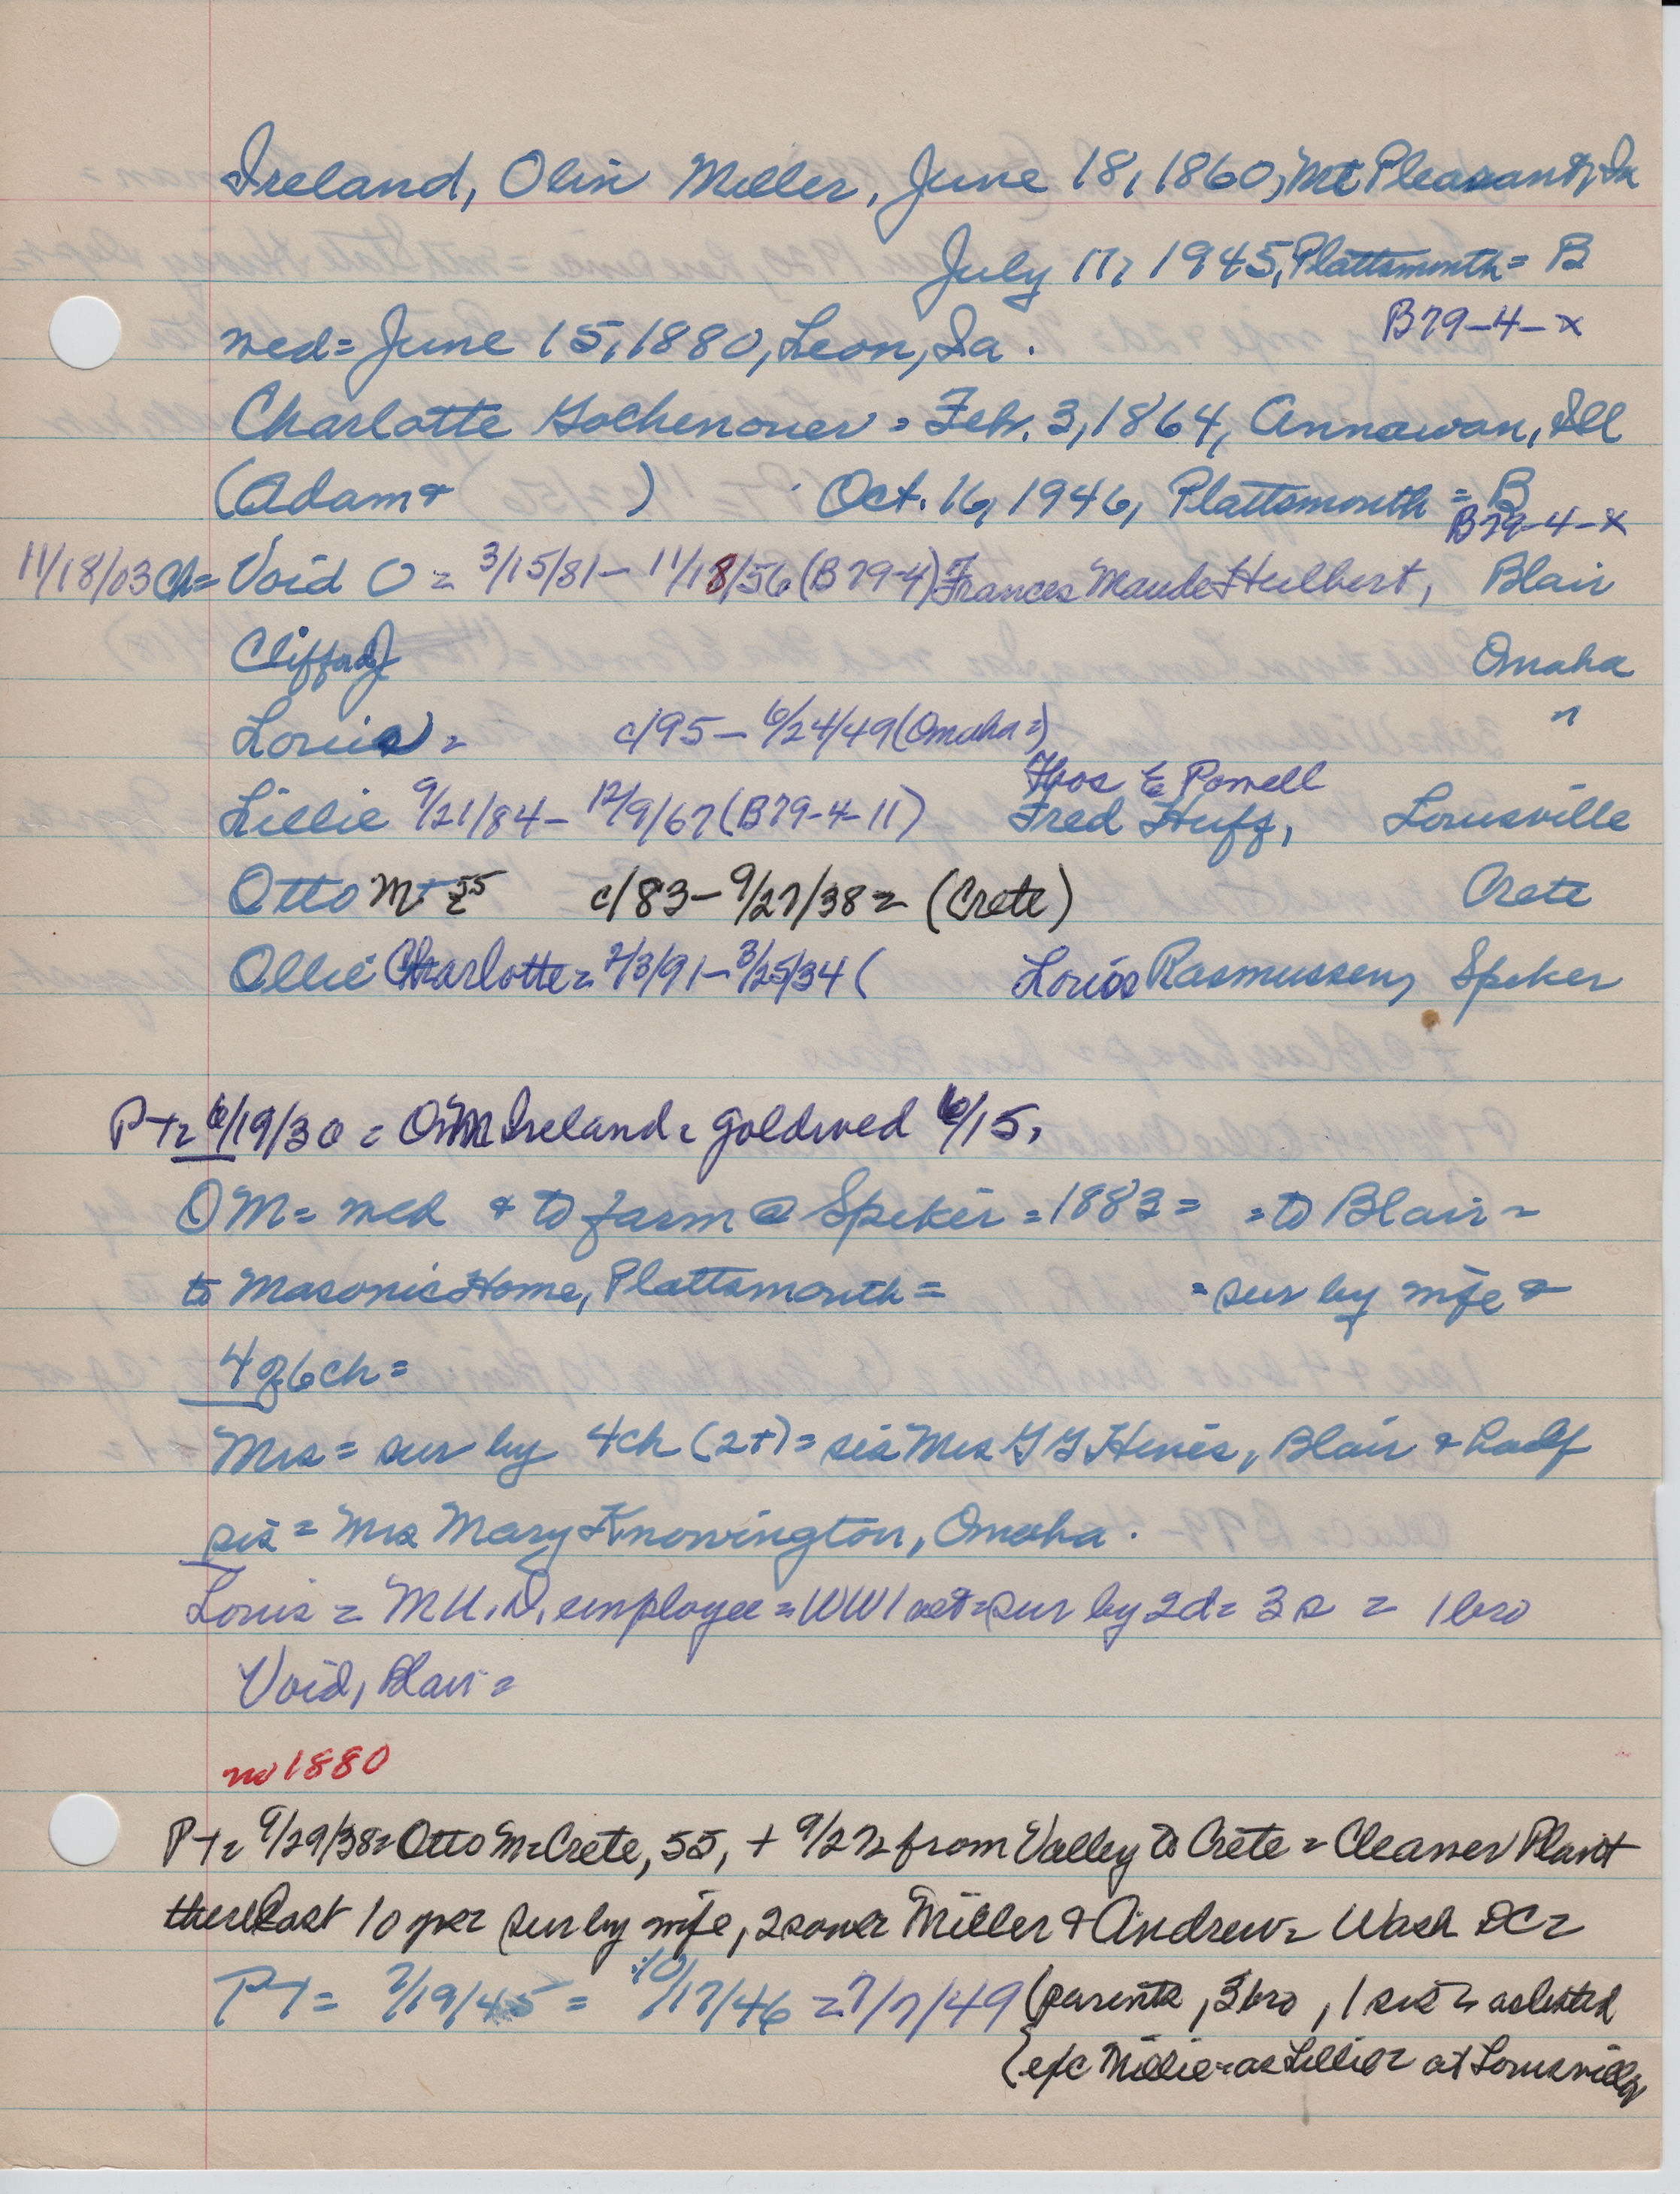 Ireland, Olin Miller, June 18, 1860, Mt Pleasant, Ia
July 17, 1945, Plattsmouth = B
B79-4-x
wed = June 15, 1880, Leon, Ia.
Charlotte Gochenouer = Feb. 3, 1864, Annawan, Ill
(Adam + ) Oct. 16, 1946, Plattsmouth = B
B79-4-x
11/18/03 Ch = Void O = 3/15/81 - 11/18/56 (B79-4) Frances Maude Hulbert, Blair
Clifford J Omaha
Louis = c/95 - 6/24/49 (Omaha =) "
Thos E Powell
Lillie 9/21/84 - 12/9/67 (B79-4-11) Fred Huff, Louisville
Otto M + 55 c/83 - 9/27/38 = (Crete) Crete
Ollie Charlotte = 7/3/91 - 3/25/34 ( Louis Rasmussen, Spiker
PT = 6/19/30 = OM Ireland = gold wed 6/15,
OM = wed + to farm @ Spiker = 1883 = = to Blair =
to Masonic Home, Plattsmouth = = sur by wife +
4 of 6 ch =
Mrs = sur by 4 ch (2+) = sis Mrs G G Hines, Blair + half
sis = Mrs Mary Knowington, Omaha.
Louis = M.U.D. employee = WW1 vet = sur by 2d = 3 s = 1 bro
Void, Blair =
no 1880
PT = 9/29/38 = Otto M = Crete, 55, + 9/27 = from Valley to Crete = Cleaner Plant
there last 10 yrs = sur by wife, 2 sons = Miller & Andrew = Wash DC =
PT = 7/19/45 = 10/17/46 = 7/7/49 (parents, 3 bro, 1 sis = as listed
(exc Millie = as Lillie = at Louisville